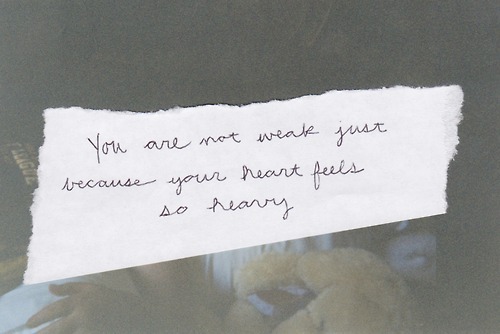 You are not weak just
because your heart feels
so heavy